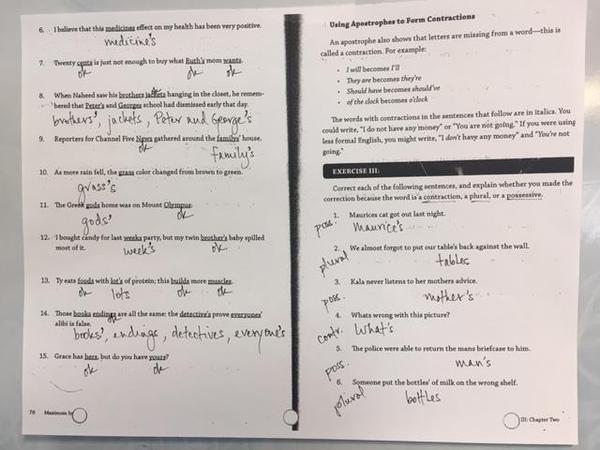 6. I believe that this medicines effect on my health has been very positive.
medicine's
7. Twenty cents is just not enough to buy what Ruth's mom wants.
ok ok ok
8. When Naheed saw his brothers jackets hanging in the closet, he remem-
bered that Peter's and Georges school had dismissed early that day.
brothers', jackets, Peter and George's
9. Reporters for Channel Five News gathered around the familys' house.
ok
family's
10. As more rain fell, the grass color changed from brown to green.
grass's
11. The Greek gods home was on Mount Olympus.
gods' ok
12. I bought candy for last weeks party, but my twin brother's baby spilled
most of it.
week's ok
13. Ty eats foods with lot's of protein; this builds more muscles.
ok lots ok ok
14. Those books endings are all the same: the detective's prove everyones'
alibi is false.
books', endings, detectives, everyone's
15. Grace has hers, but do you have yours?
ok ok
76 Maximum
Using Apostrophes to Form Contractions
An apostrophe also shows that letters are missing from a word—this is
called a contraction. For example:
• I will becomes I'll
• They are becomes they're
• Should have becomes should've
• of the clock becomes o'clock
The words with contractions in the sentences that follow are in italics. You
could write, "I do not have any money" or "You are not going." If you were using
less formal English, you might write, "I don't have any money" and "You're not
going."
EXERCISE III:
Correct each of the following sentences, and explain whether you made the
correction because the word is a contraction, a plural, or a possessive.
1. Maurices cat got out last night.
poss. Maurice's
2. We almost forgot to put our table's back against the wall.
plural tables
3. Kala never listens to her mothers advice.
poss. mother's
4. Whats wrong with this picture?
contr. What's
5. The police were able to return the mans briefcase to him.
poss. man's
6. Someone put the bottles' of milk on the wrong shelf.
plural bottles
III: Chapter Two